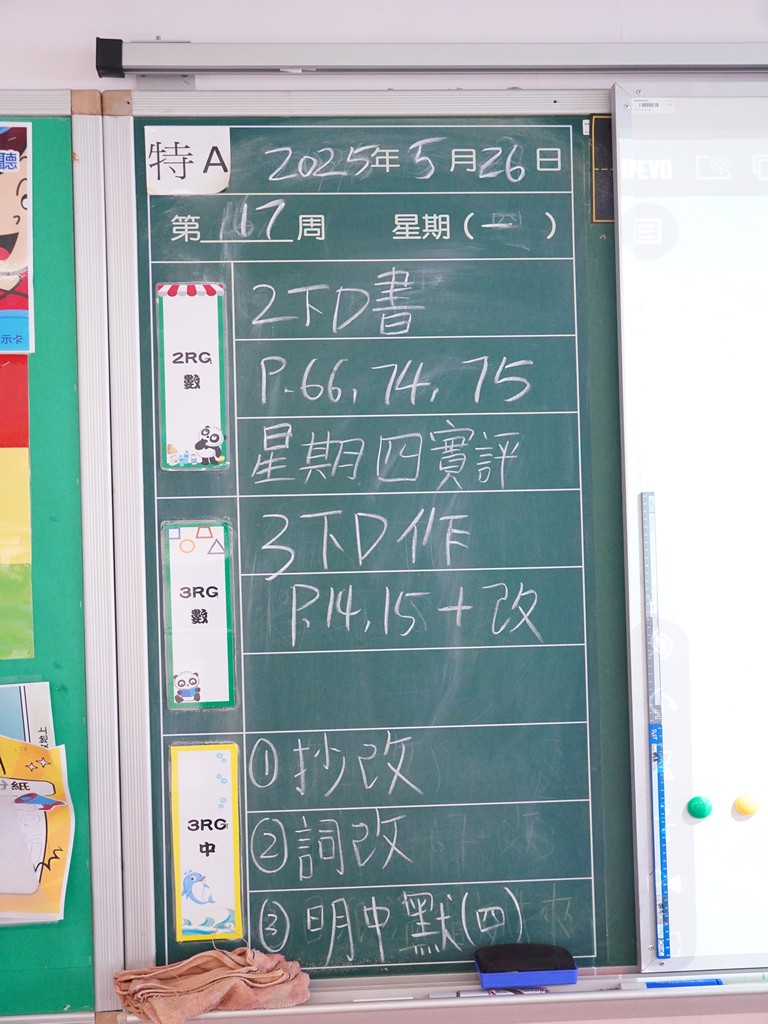 特A 2025年5月26日
第17周 星期(一)
2RG
數
2下D書
P.66, 74, 75
星期四實評
3RG
數
3下D作
P.14, 15 + 改
3RG
中
①抄改
②詞改
③明中默(四)